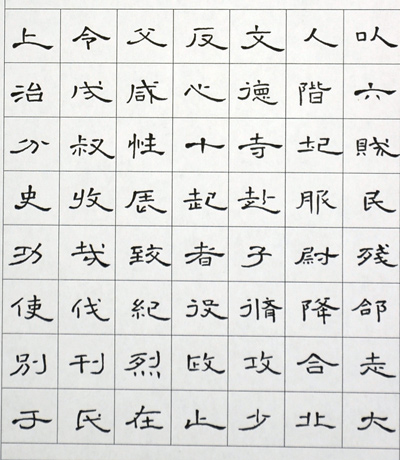 以六賊民残郃走大
人階服尉降合北
文德寺赴子脩攻少
反心十起者役政止
父咸性辰致紀烈在
令叔收哉伐刊氏
上治分史功使別于